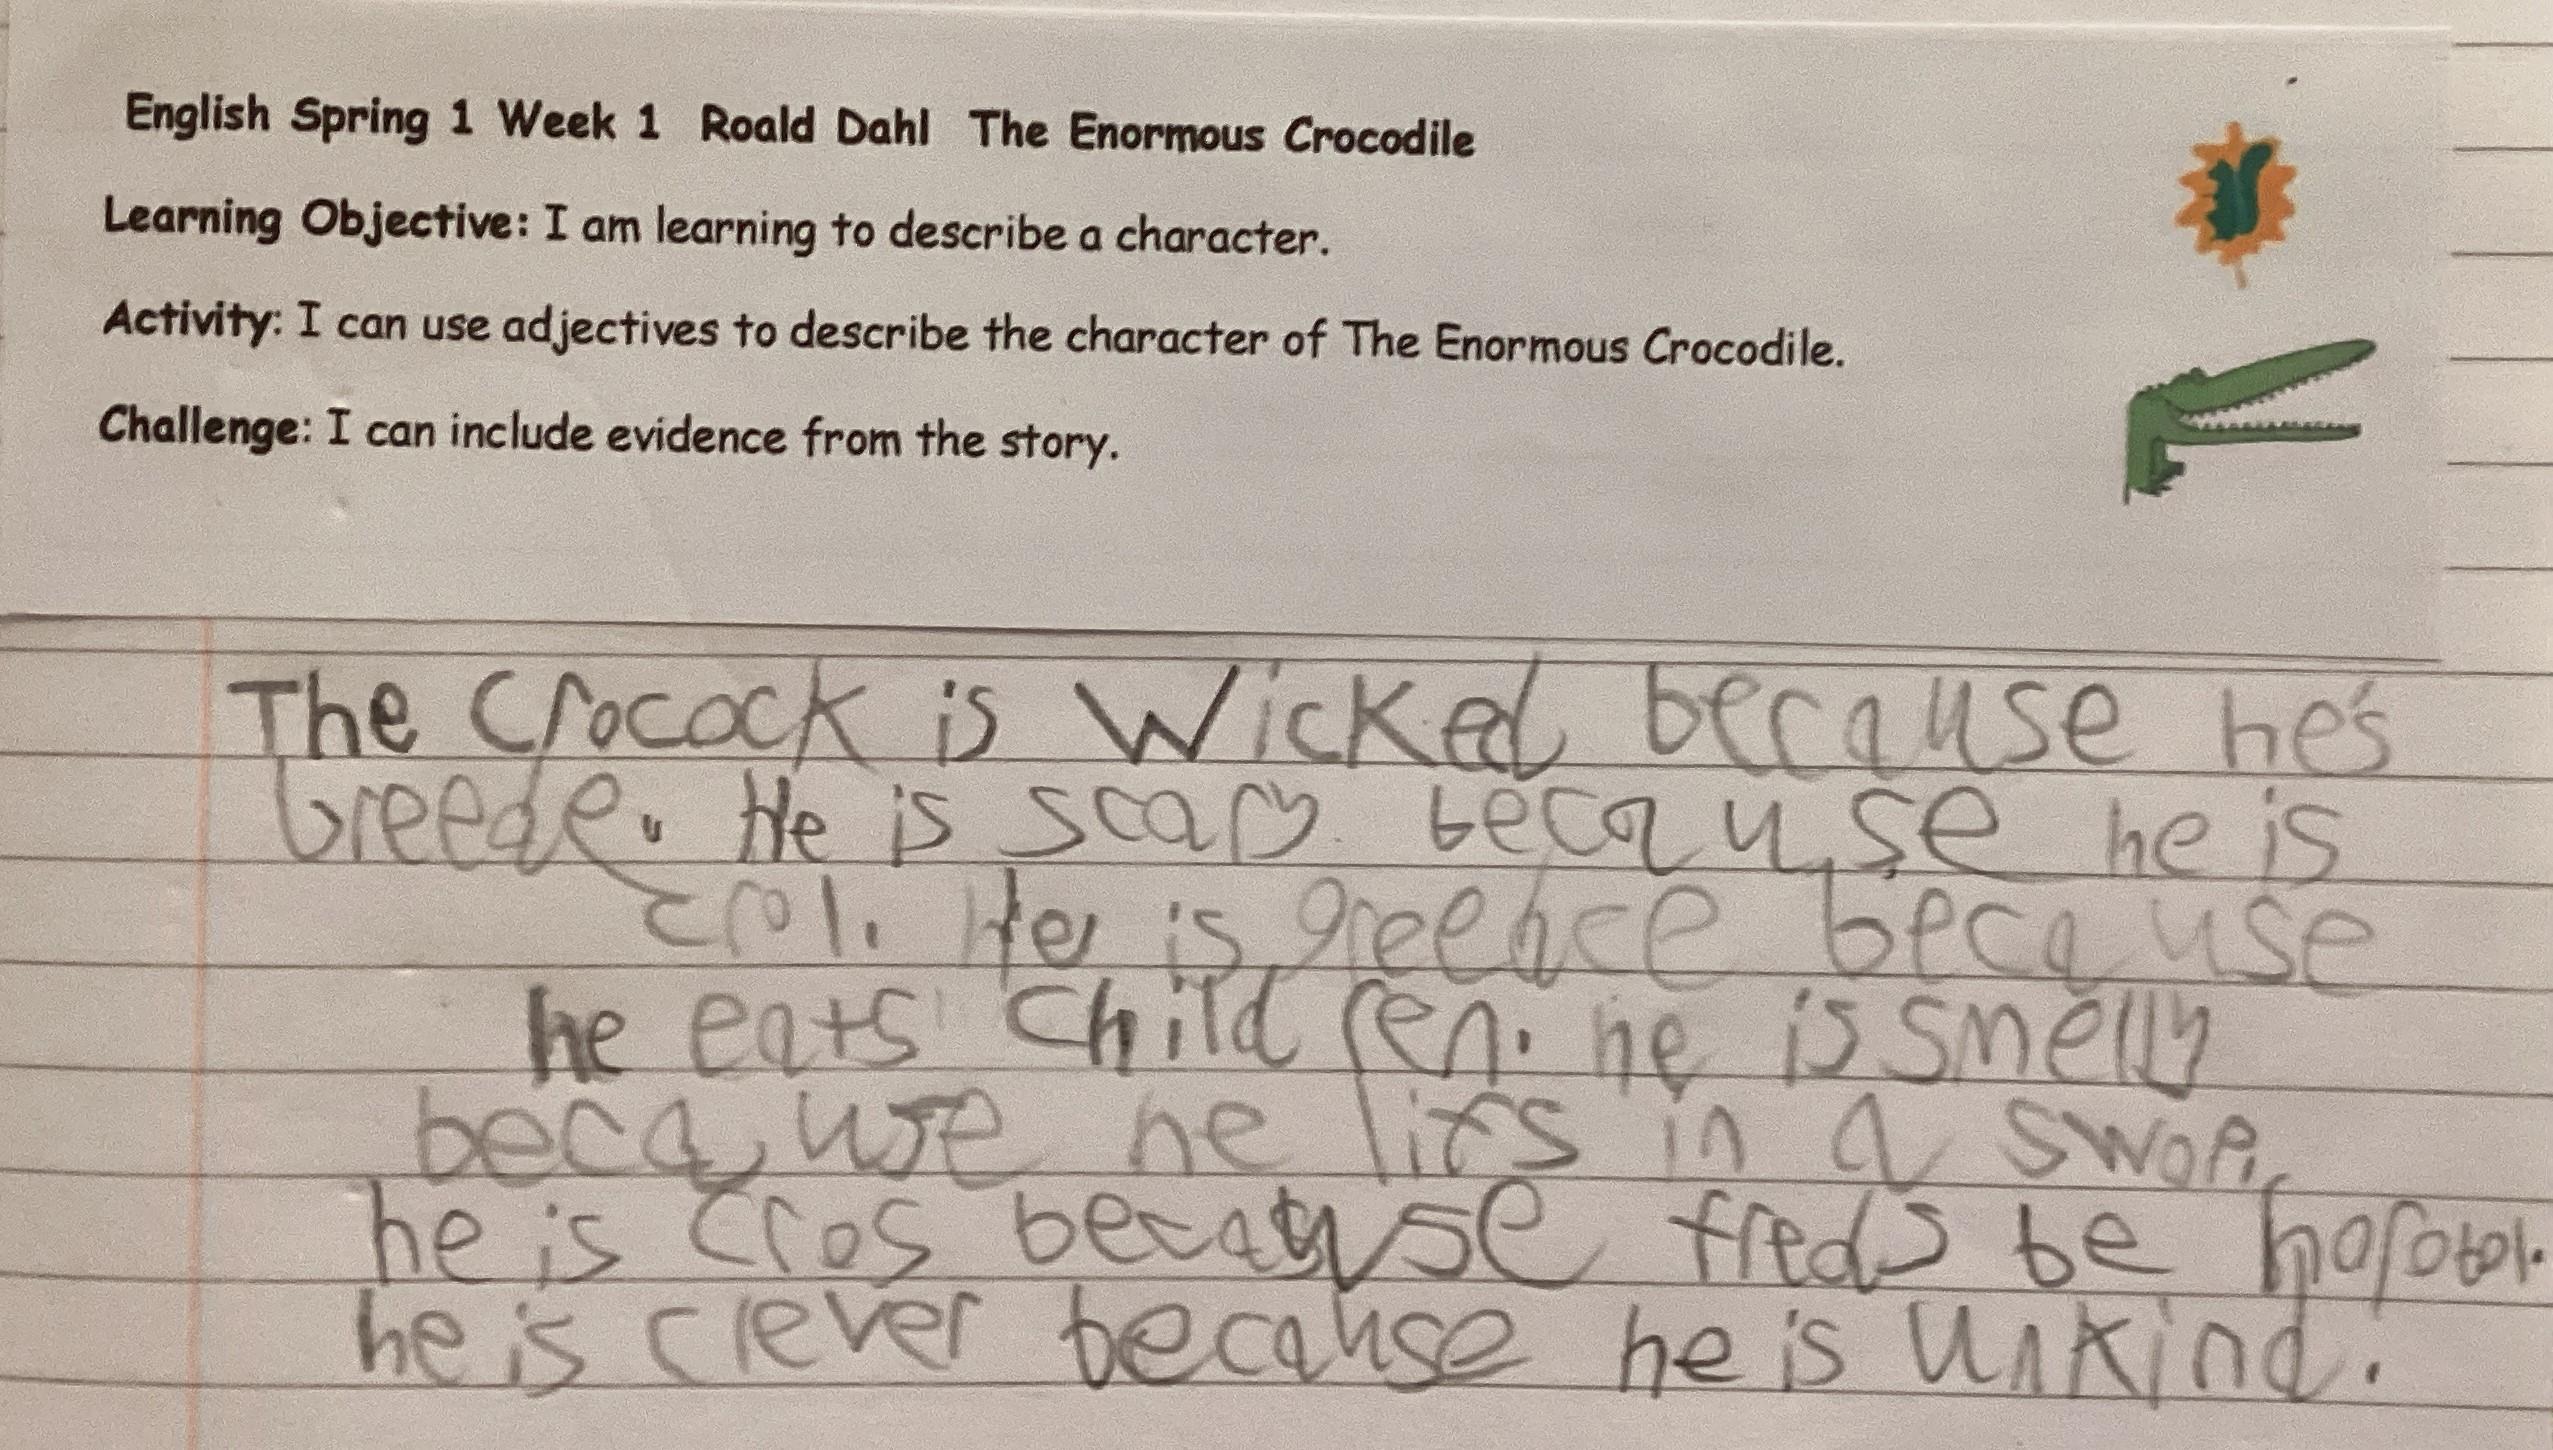 English Spring 1 Week 1 Roald Dahl The Enormous Crocodile
Learning Objective: I am learning to describe a character.
Activity: I can use adjectives to describe the character of The Enormous Crocodile.
Challenge: I can include evidence from the story.
The Crocock is Wicked because he's
breede. He is scary because he is
crol. He is greehce because
he eats children. he is smelly
because he lifs in a swop.
he is cros because freds be horobol.
he is clever because he is unkind.